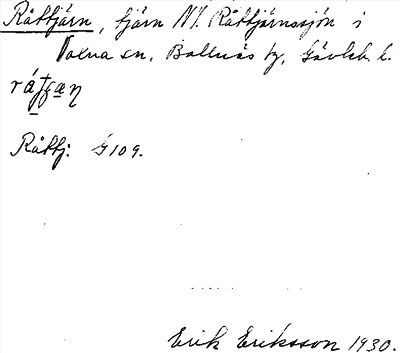 Råttjärn, tjärn NV. Råttjärnssjön i
Voxna sn, Bollnäs tg, Gävleb. l.
Råttj. G 109.
Erik Eriksson 1930.